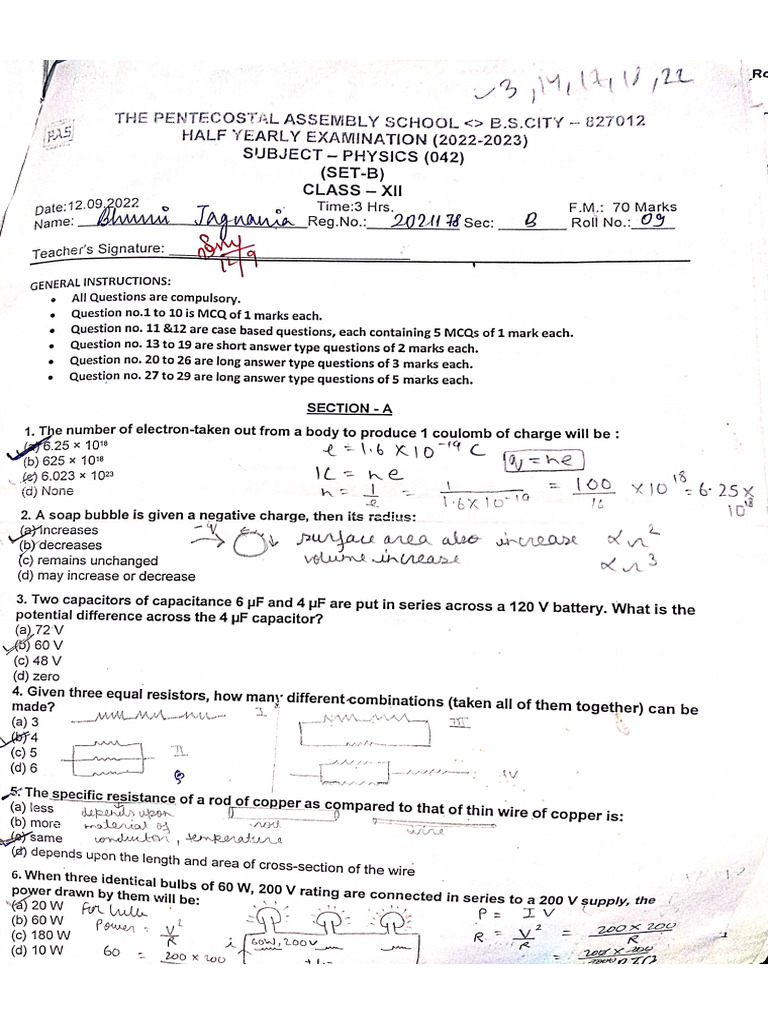 3, 14, 17, 18, 22
Ro
PAS
THE PENTECOSTAL ASSEMBLY SCHOOL <> B.S.CITY – 827012
HALF YEARLY EXAMINATION (2022-2023)
SUBJECT – PHYSICS (042)
(SET-B)
CLASS – XII
Date:12.09.2022 Time:3 Hrs. F.M.: 70 Marks
Name: Bhumi Jagnania Reg.No.: 2021178 Sec: B Roll No.: 09
Teacher's Signature:
12/9
GENERAL INSTRUCTIONS:
• All Questions are compulsory.
• Question no.1 to 10 is MCQ of 1 marks each.
• Question no. 11 &12 are case based questions, each containing 5 MCQs of 1 mark each.
• Question no. 13 to 19 are short answer type questions of 2 marks each.
• Question no. 20 to 26 are long answer type questions of 3 marks each.
• Question no. 27 to 29 are long answer type questions of 5 marks each.
SECTION - A
1. The number of electron-taken out from a body to produce 1 coulomb of charge will be :
(a) 6.25 × 10¹⁸ e = 1.6 X 10⁻¹⁹ C
(b) 625 × 10¹⁸ q = ne
(c) 6.023 × 10²³ 1C = ne
(d) None n = 1/e = 1/1.6X10⁻¹⁹ = 100/16 X10¹⁸ = 6.25 X 10¹⁸
2. A soap bubble is given a negative charge, then its radius:
(a) Increases -q surface area also increase ∝ r²
(b) decreases
(c) remains unchanged volume increase ∝ r³
(d) may increase or decrease
3. Two capacitors of capacitance 6 µF and 4 µF are put in series across a 120 V battery. What is the
potential difference across the 4 µF capacitor?
(a) 72 V
(b) 60 V
(c) 48 V
(d) zero
4. Given three equal resistors, how many different combinations (taken all of them together) can be
made?
(a) 3 I III
(b) 4
(c) 5 II
(d) 6 IV
5. The specific resistance of a rod of copper as compared to that of thin wire of copper is:
(a) less depends upon
(b) more material of rod wire
(c) same conductor, temperature
(d) depends upon the length and area of cross-section of the wire
6. When three identical bulbs of 60 W, 200 V rating are connected in series to a 200 V supply, the
power drawn by them will be:
(a) 20 W For bulb P = I V
(b) 60 W Power = V²/R R = V²/R = 200 X 200/R
(c) 180 W i 60W, 200V
(d) 10 W 60 = 200 X 200
1